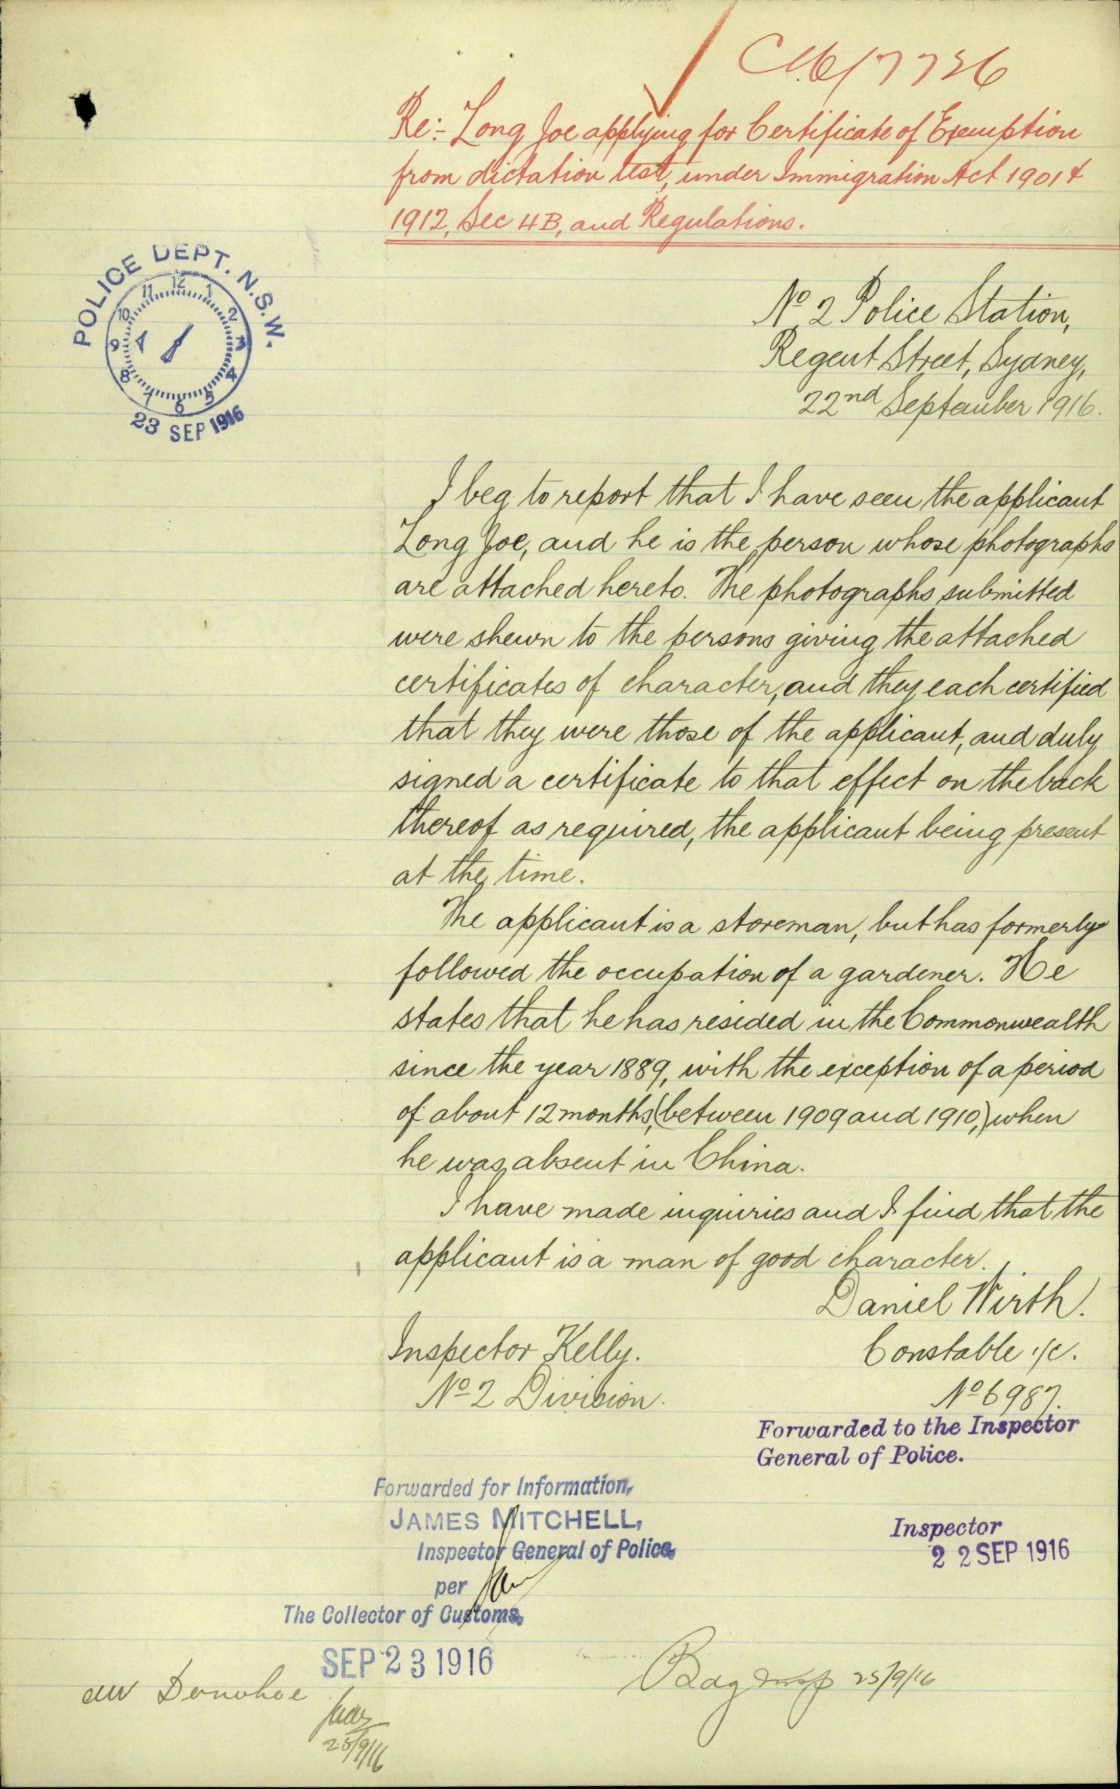 C16/7736
Re:- Long Joe applying for Certificate of Exemption
from dictation test, under Immigration Act 1901 &
1912, Sec 4B, and Regulations.
POLICE DEPT. N.S.W.
12 1 2 3 4 5 6 7 8 9 10 11
A
23 SEP 1916
No 2 Police Station,
Regent Street, Sydney,
22nd September 1916.
I beg to report that I have seen the applicant
Long Joe, and he is the person whose photographs
are attached hereto. The photographs submitted
were shewn to the persons giving the attached
certificates of character, and they each certified
that they were those of the applicant, and duly
signed a certificate to that effect on the back
thereof as required, the applicant being present
at the time.
The applicant is a storeman, but has formerly
followed the occupation of a gardener. He
states that he has resided in the Commonwealth
since the year 1889, with the exception of a period
of about 12 months, (between 1909 and 1910,) when
he was absent in China.
I have made inquiries and I find that the
applicant is a man of good character.
Daniel Wirth.
Constable 1/c.
No 6987.
Inspector Kelly.
No 2 Division.
Forwarded to the Inspector
General of Police.
Inspector
22 SEP 1916
Forwarded for Information,
JAMES MITCHELL,
Inspector General of Police,
per
The Collector of Customs,
SEP 23 1916
Mr Donohoe
25/9/16
25/9/16